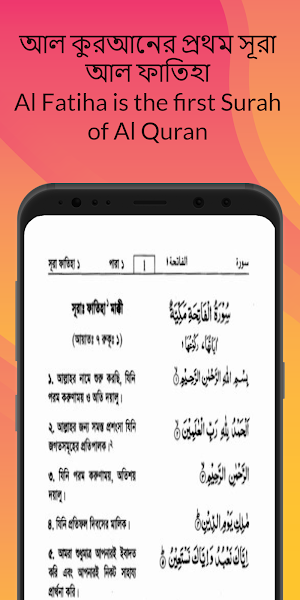 আল কুরআনের প্রথম সূরা
আল ফাতিহা
Al Fatiha is the first Surah
of Al Quran
সূরা ফাতিহা ১ পারা ১ ١ الفاتحة ١ سورة
সূরাঃ ফাতিহা১ মাক্কী
(আয়াতঃ ৭ রুকূঃ ১)
سُوْرَةُ الْفَاتِحَةِ مَكِّيَّةٌ
১. আল্লাহর নামে শুরু করছি, যিনি
পরম করুণাময় ও অতি দয়ালু।
بِسْمِ اللّٰهِ الرَّحْمٰنِ الرَّحِيْمِ
২. আল্লাহর জন্য সমস্ত প্রশংসা যিনি
জগতসমূহের প্রতিপালক।২
اَلْحَمْدُ لِلّٰهِ رَبِّ الْعٰلَمِيْنَ
৩. যিনি পরম করুণাময়, অতিশয়
দয়ালু।
الرَّحْمٰنِ الرَّحِيْمِ
৪. যিনি প্রতিফল দিবসের মালিক।
مٰلِكِ يَوْمِ الدِّيْنِ
৫. আমরা শুধুমাত্র আপনারই ইবাদত
করি এবং আপনারই নিকট সাহায্য
প্রার্থনা করি।
اِيَّاكَ نَعْبُدُ وَاِيَّاكَ نَسْتَعِيْنُ